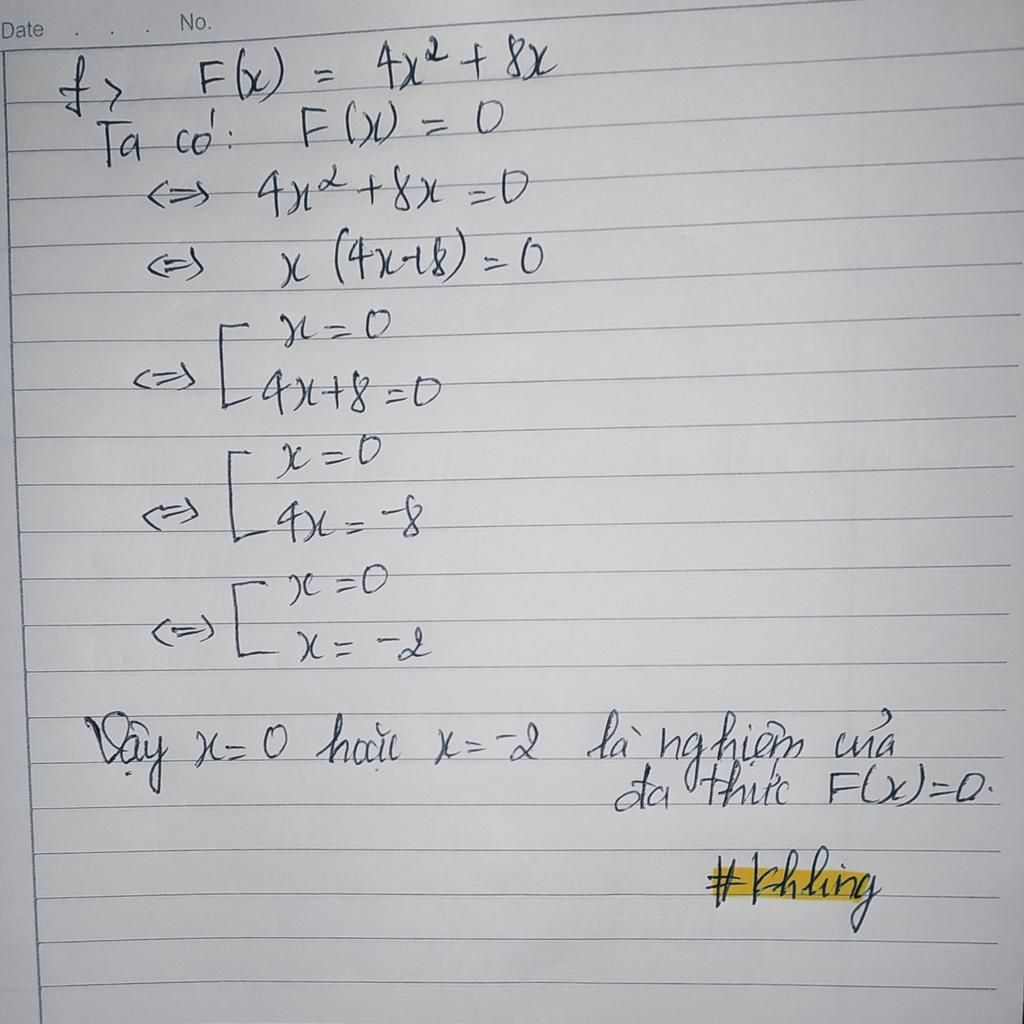 Date . . . No.
f> F(x) = 4x² + 8x
Ta có: F(x) = 0
<=> 4x² + 8x = 0
<=> x (4x+8) = 0
<=> [ x = 0
4x+8 = 0
<=> [ x = 0
4x = -8
<=> [ x = 0
x = -2
Vậy x = 0 hoặc x = -2 là nghiệm của
đa thức F(x) = 0.
#Khling